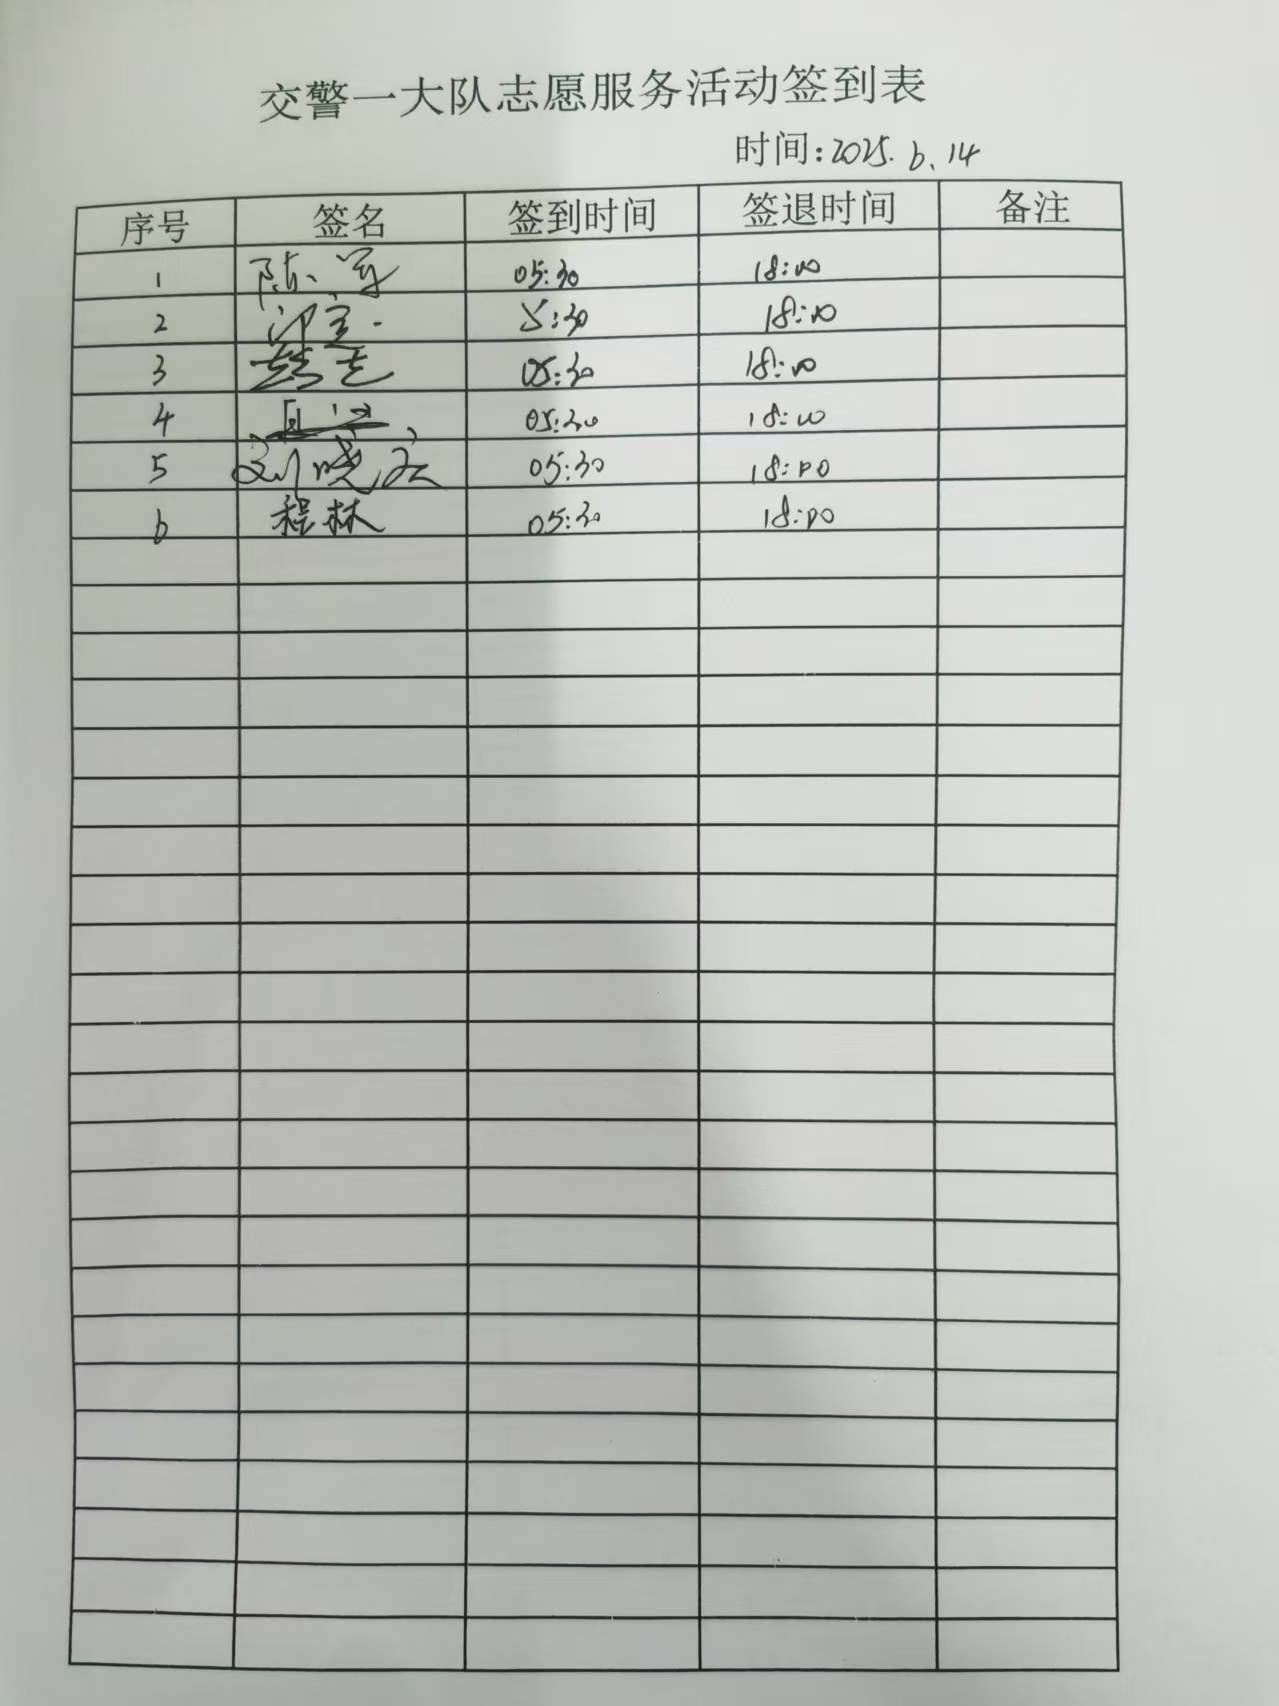 交警一大队志愿服务活动签到表
时间:2025.6.14
序号 签名 签到时间 签退时间 备注
1 陈军 05:30 18:00
2 5:30 18:00
3 05:30 18:00
4 05:30 18:00
5 刘晓宏 05:30 18:00
6 程林 05:30 18:00